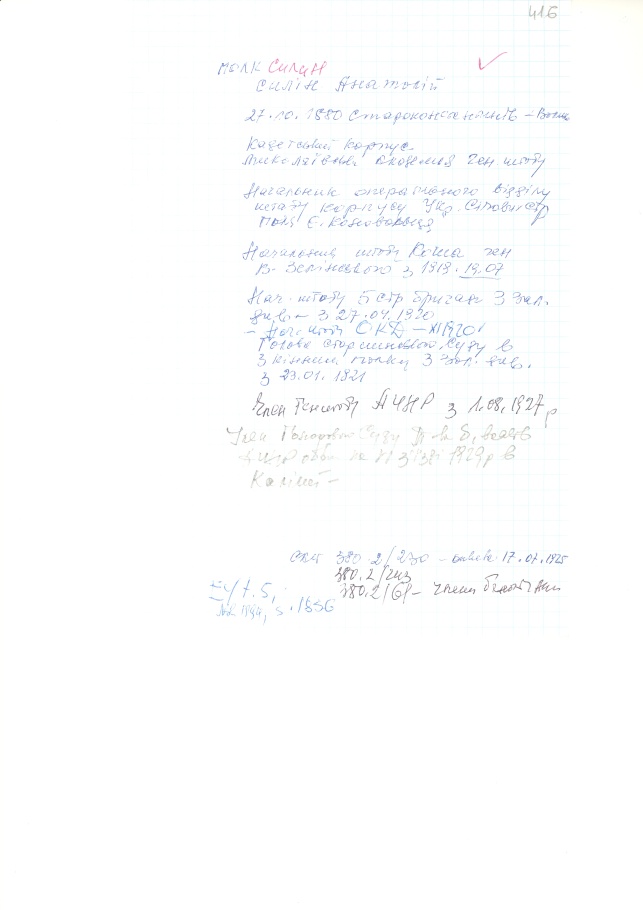 416
ПОЛК СИЛІН
СИЛІН Анатолій
27.10.1880 Староконстянтинів –
Кадетський корпус
Миколаївська Академія Ген. штабу
Начальник оперативного відділу
штабу корпусу Укр. Січових Стр
полк Є. Коновальця
Начальник штабу Коша ген
В. Зелінського з 1919.19.07
Нач. штабу 5 стр бригади 3 Зал.
див – з 27.04.1920
– Нач. штабу ОКД – XI 1920
Голова старшинського Суду в
3 кінним полку 3 зал. див.
з 23.01.1921
Член Генштабу АУНР з 1.08.1927 р
Член Суду
на зїзді 1929 р в
Каліші –
380.2/230 – 17.07.1925
380.2/243
380.2/61 – члени
EU t.5,
1994, s. 1836